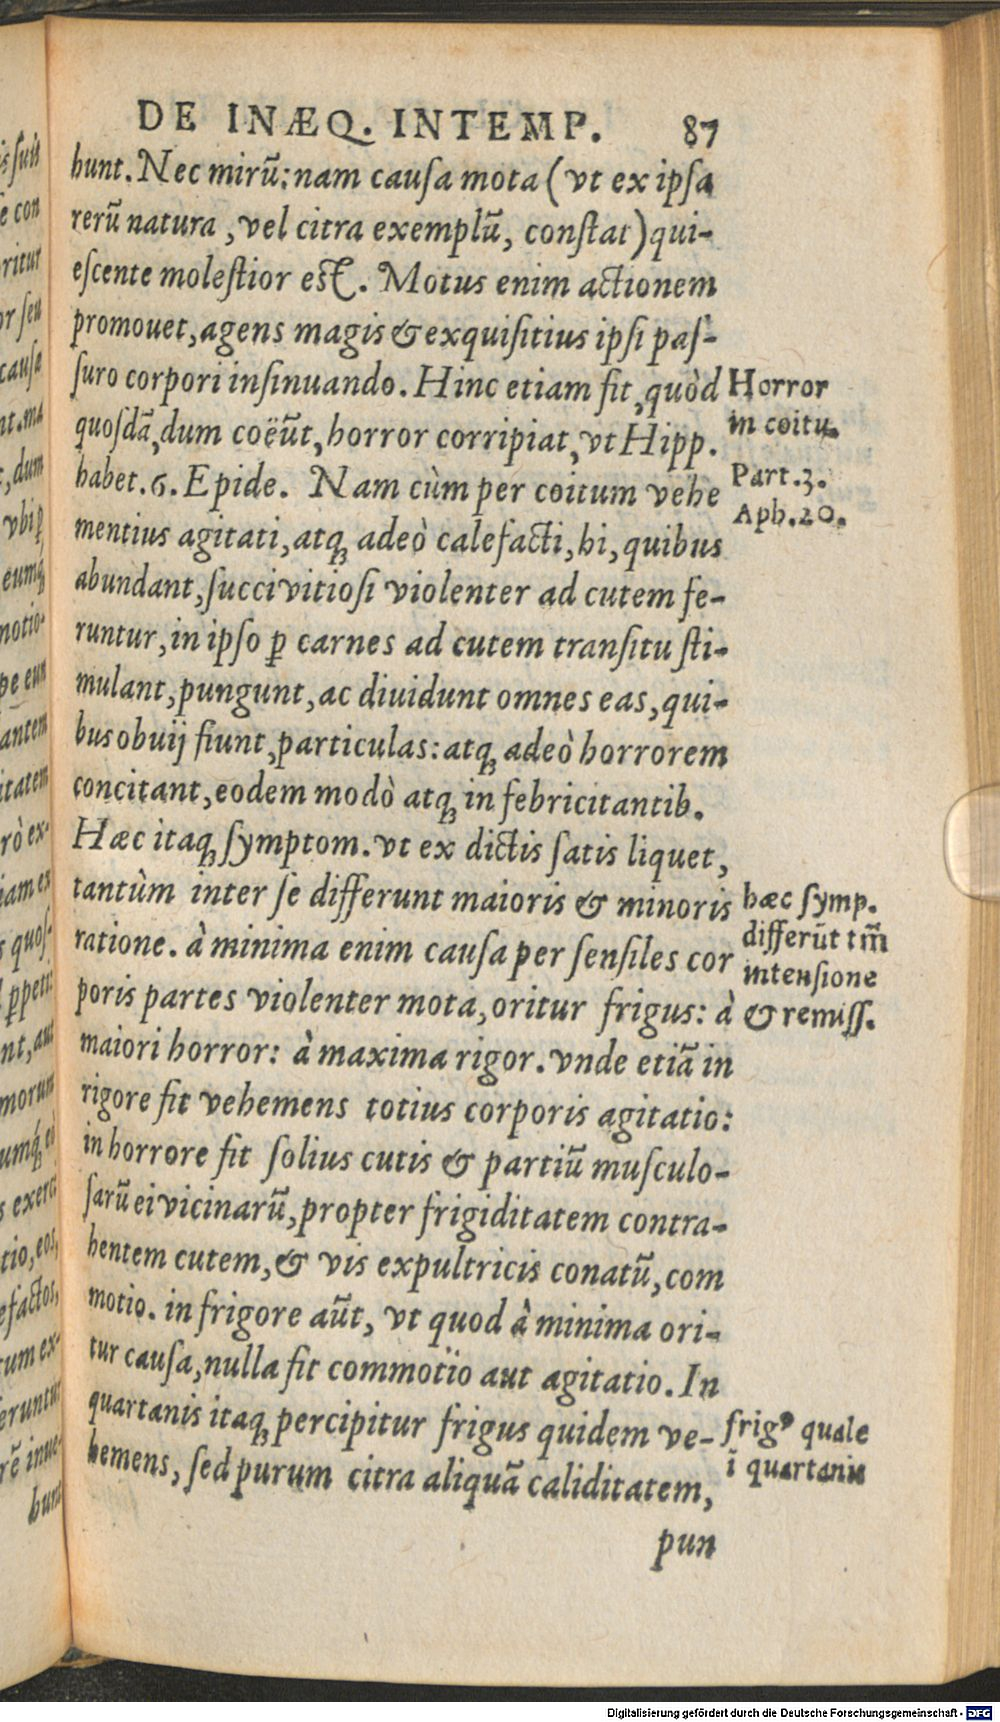 DE INÆQ. INTEMP. 87
hunt. Nec mirũ: nam cauſa mota (vt ex ipſa
rerũ natura, vel citra exemplũ, conſtat) qui-
eſcente moleſtior eſt. Motus enim actionem
promouet, agens magis & exquiſitius ipſi paſ-
ſuro corpori inſinuando. Hinc etiam fit, quòd
quoſdã, dum coëũt, horror corripiat, vt Hipp.
habet. 6. Epide. Nam cùm per coitum vehe
mentius agitati, atq; adeò calefacti, hi, quibus
abundant, ſucci vitioſi violenter ad cutem fe-
runtur, in ipſo ꝑ carnes ad cutem tranſitu ſti-
mulant, pungunt, ac diuidunt omnes eas, qui-
bus obuij fiunt, particulas: atq; adeò horrorem
concitant, eodem modò atq; in febricitantib.
Hæc itaq; ſymptom. vt ex dictis ſatis liquet,
tantùm inter ſe differunt maioris & minoris
ratione. à minima enim cauſa per ſenſiles cor
poris partes violenter mota, oritur frigus: à
maiori horror: à maxima rigor. vnde etiã in
rigore fit vehemens totius corporis agitatio:
in horrore fit ſolius cutis & partiũ muſculo-
ſarũ ei vicinarũ, propter frigiditatem contra-
hentem cutem, & vis expultricis conatũ, com
motio. in frigore aũt, vt quod à minima ori-
tur cauſa, nulla fit commotio aut agitatio. In
quartanis itaq; percipitur frigus quidem ve-
hemens, ſed purum citra aliquã caliditatem,
pun
Horror
in coitu.
Part. 3.
Aph. 20.
hæc ſymp.
differũt tm̃
intenſione
& remiſſ.
frigꝰ quale
ĩ quartanis
is ſuit
e con
oritur
or ſeu
cauſa
nt. ma
, dum
vbiꝑ
eumq́;
notio-
pe eun
antem
itatem
rò ex-
iam ex
s quoſ-
ꝑpeti:
nt, aut
morum
umq́; eò
s exerci
tio, eos,
efactos,
tum ex-
eruntur
rẽ inue-
hunt
Digitalisierung gefördert durch die Deutsche Forschungsgemeinschaft - DFG